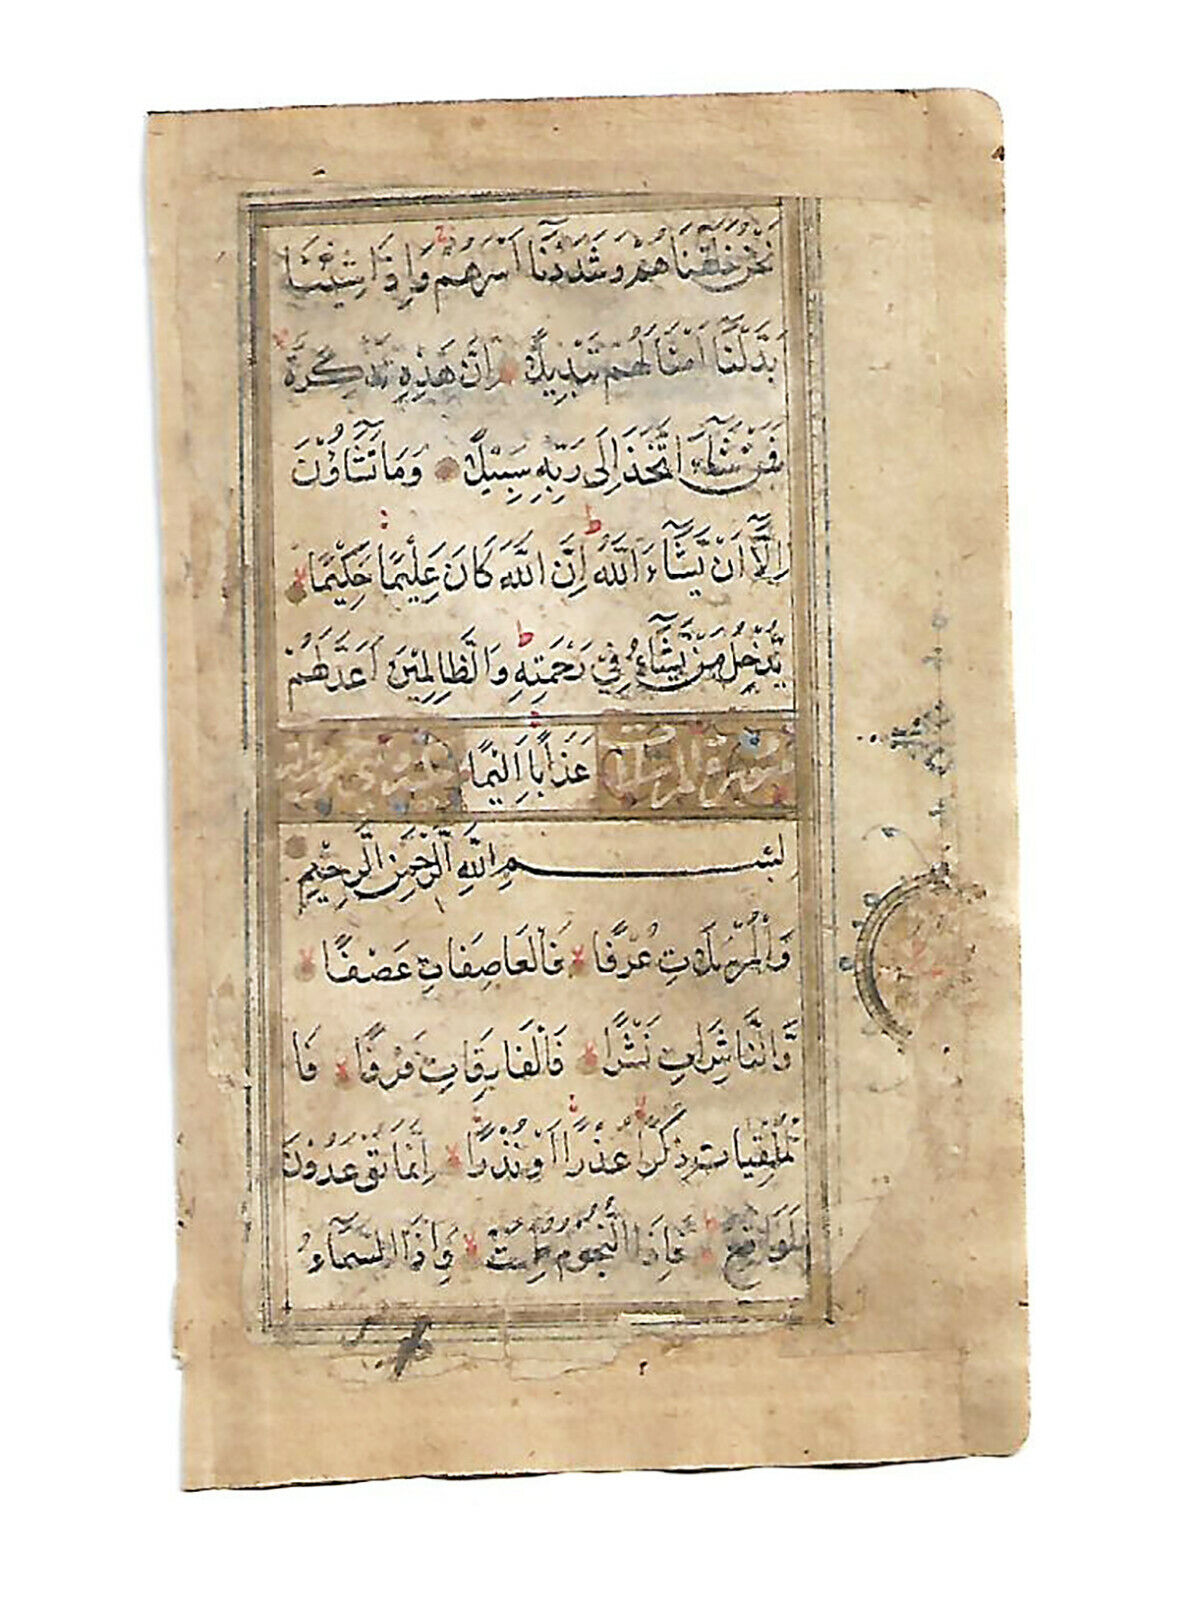 نَحْنُ خَلَقْنَاهُمْ وَشَدَدْنَآ اَسْرَهُمْ وَاِذَا شِئْنَا
بَدَّلْنَآ اَمْثَالَهُمْ تَبْدِيلًا اِنَّ هَذِهِ تَذْكِرَةٌ
فَمَنْ شَآءَ اتَّخَذَ اِلَى رَبِّهِ سَبِيْلًا وَمَا تَشَآؤُنَ
اِلَّآ اَنْ يَّشَآءَ اللّٰهُ اِنَّ اللّٰهَ كَانَ عَلِيْمًا حَكِيْمًا
يُّدْخِلُ مَنْ يَّشَآءُ فِيْ رَحْمَتِهِ وَالظَّالِمِيْنَ اَعَدَّ لَهُمْ
سورة المرسلات عَذَابًا اَلِيْمًا
بِسْمِ اللّٰهِ الرَّحْمٰنِ الرَّحِيْمِ
وَالْمُرْسَلَاتِ عُرْفًا فَالْعَاصِفَاتِ عَصْفًا
وَّالنَّاشِرَاتِ نَشْرًا فَالْفَارِقَاتِ فَرْقًا فَا
لْمُلْقِيَاتِ ذِكْرًا عُذْرًا اَوْ نُذْرًا اِنَّمَا تُوْعَدُوْنَ
لَوَاقِعٌ فَاِذَا النُّجُوْمُ طُمِسَتْ وَاِذَا السَّمَآءُ